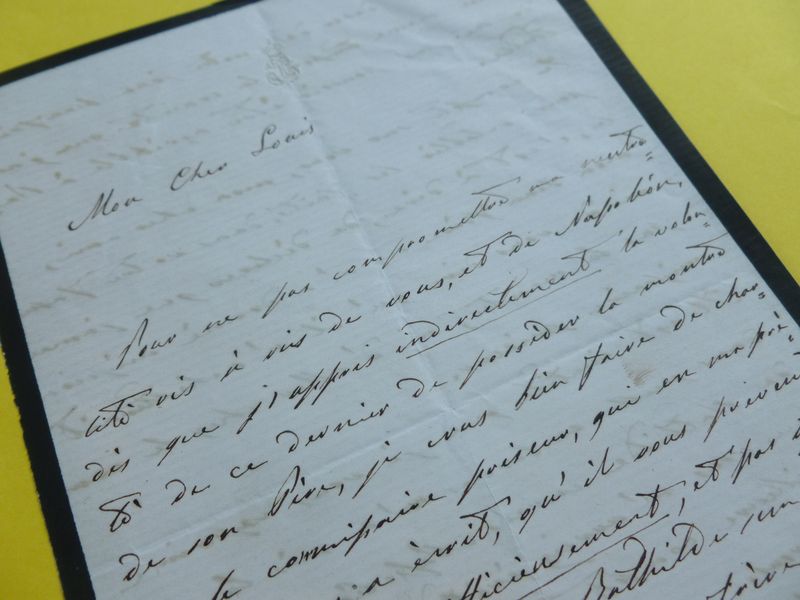 Mon Cher Louis
Pour ne pas compromettre ma neutra=
lité vis à vis de vous, et de Napoléon,
dès que j'appris indirectement la volon=
té de ce dernier de possèder la montre
de son Père, je crus bien faire de char=
le commissaire priseur, qui en ma pré=
a écrit, qu'il vous prévient
officieusement, et pas
Bathilde